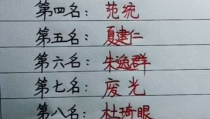 第四名：范统
第五名：夏建仁
第六名：朱逸群
第七名：庞光
第八名：杜琦眼